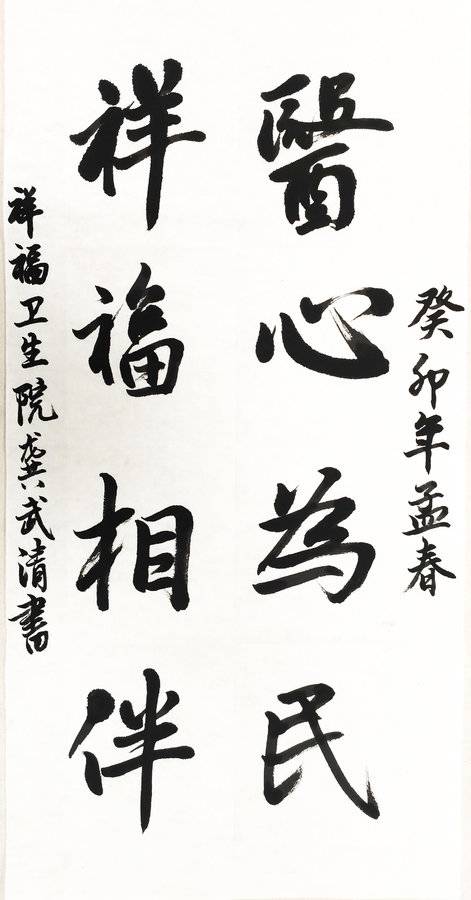 癸卯年孟春
醫心為民
祥福相伴
祥福卫生院龚武清書